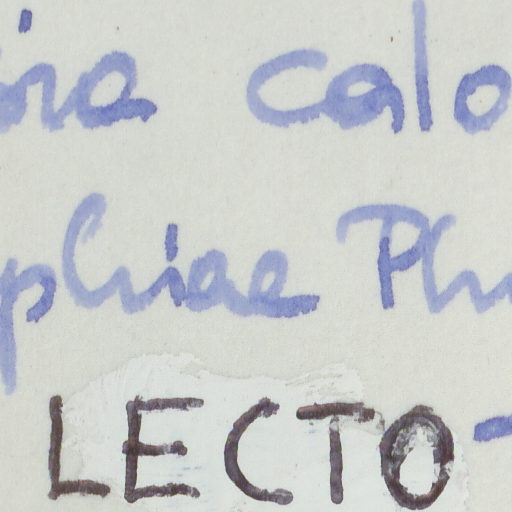 ora calo
phiae Phi
LECTO-